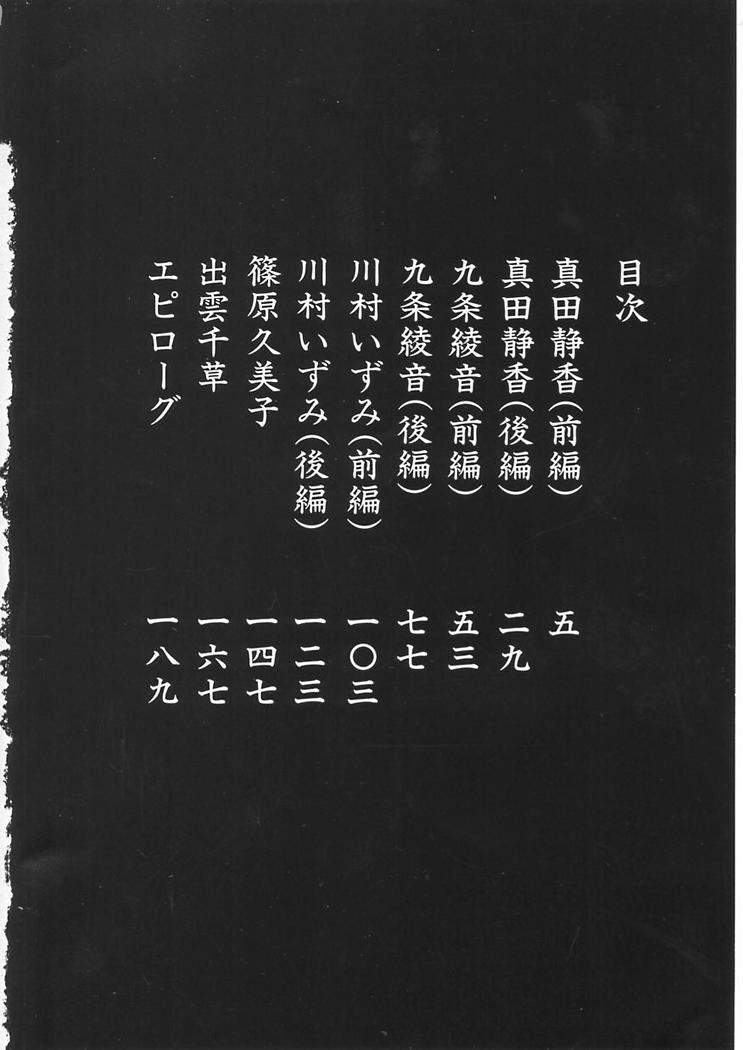 目次
真田静香(前編) 五
真田静香(後編) 二九
九条綾音(前編) 五三
九条綾音(後編) 七七
川村いずみ(前編) 一〇三
川村いずみ(後編) 一二三
篠原久美子 一四七
出雲千草 一六七
エピローグ 一八九